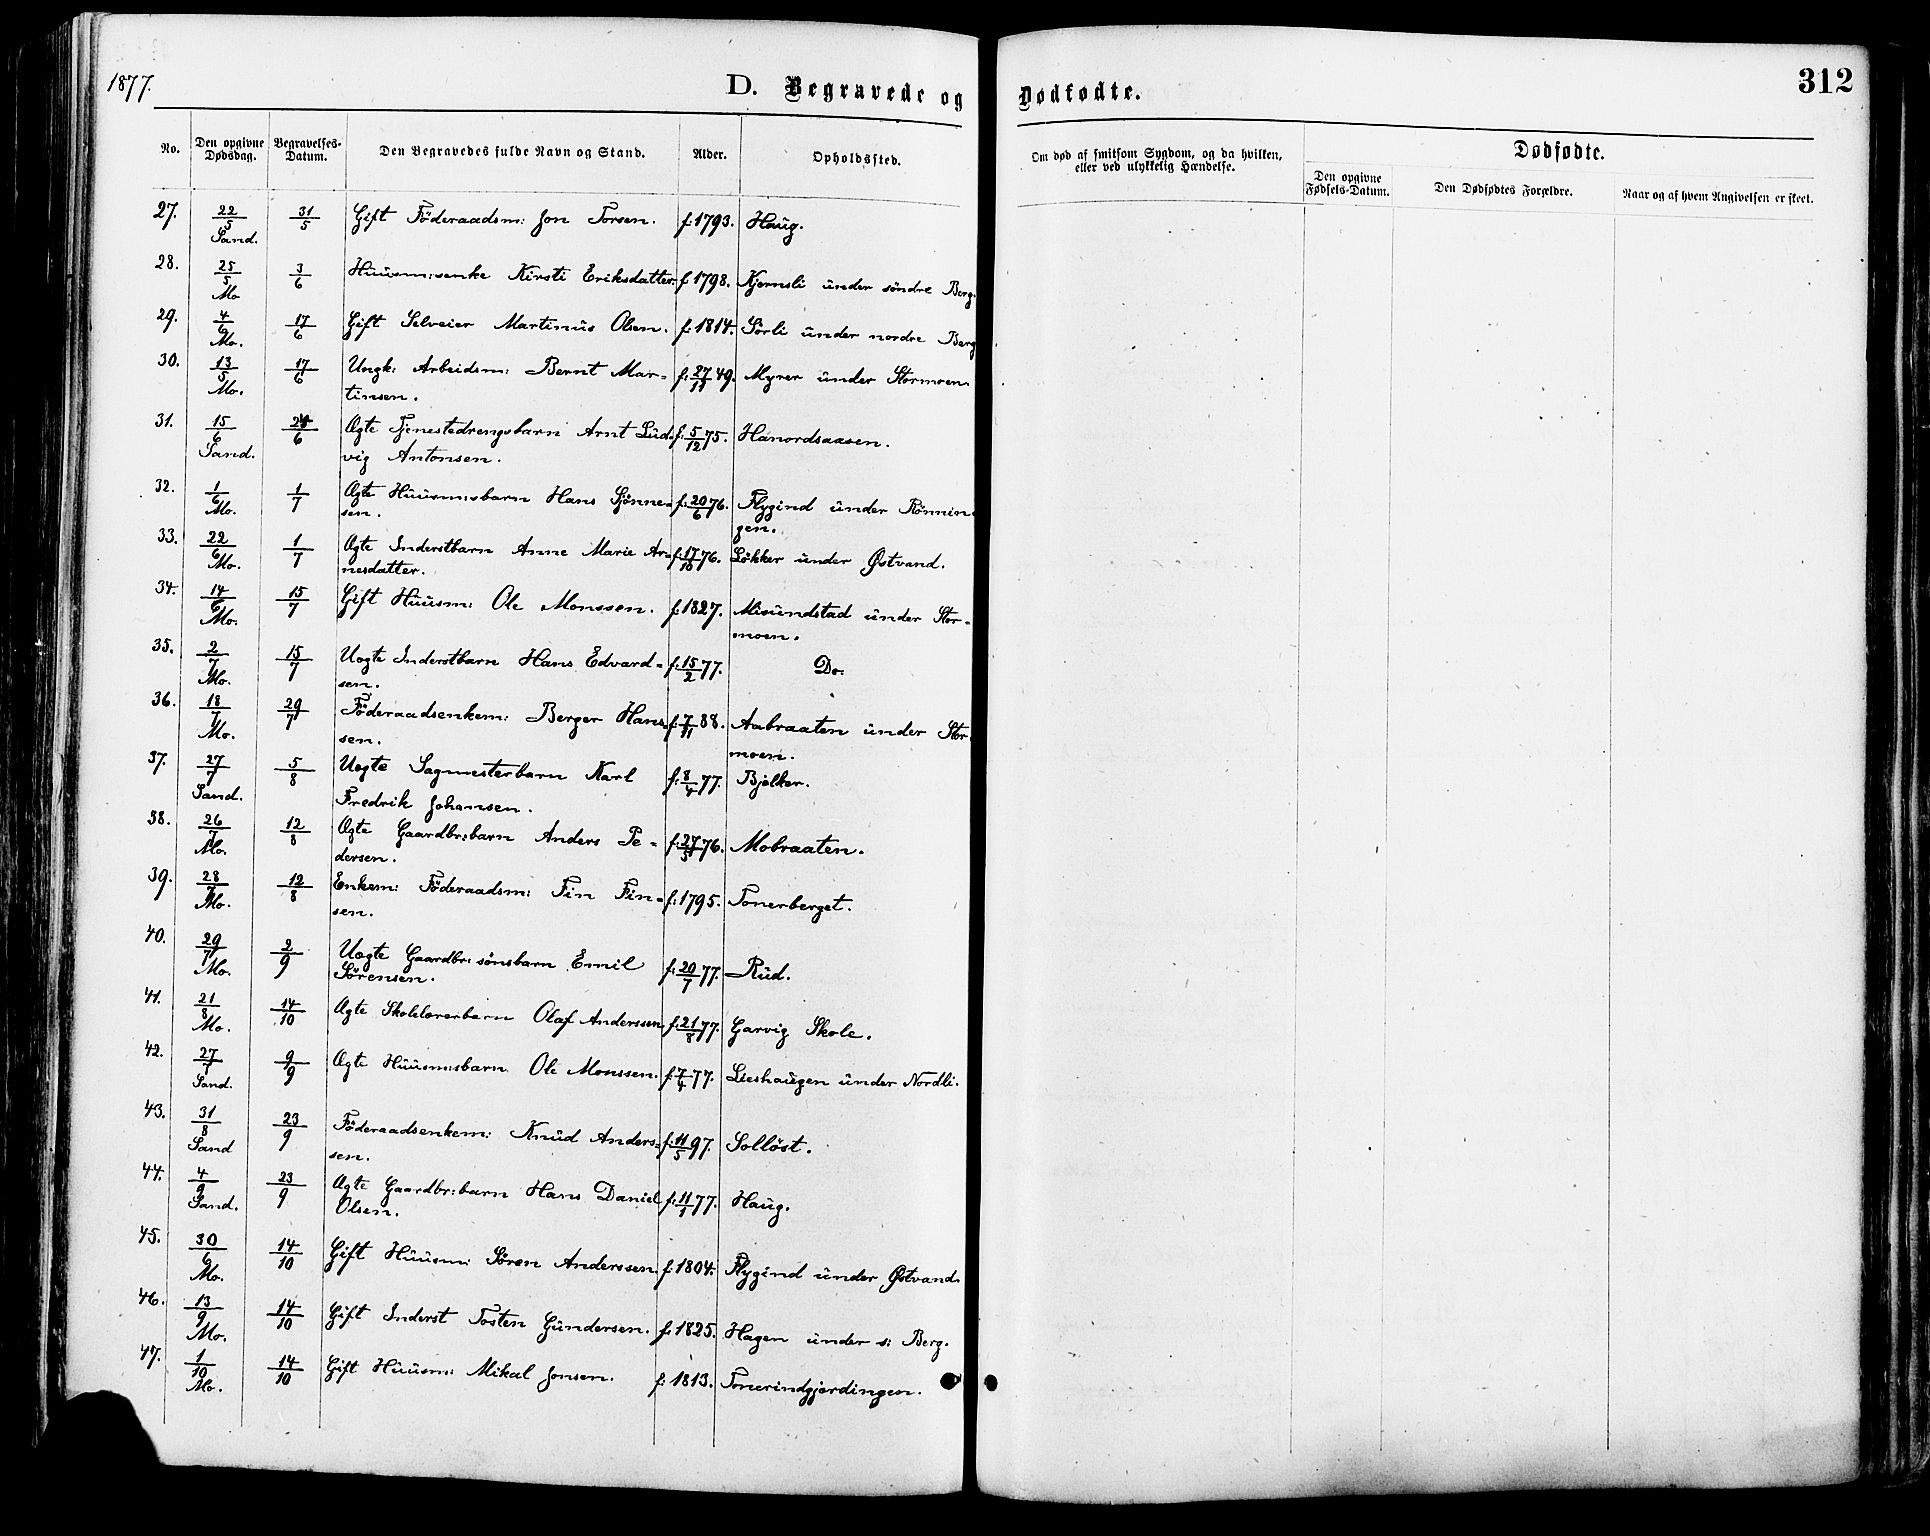 1877.
D. Begravede og Dødfødte.
312
No.
Den opgivne Dødsdag.
Begravelses-Datum.
Den Begravedes fulde Navn og Stand.
Alder.
Opholdssted.
Om død af smitsom Sygdom, og da hvilken,
eller ved ulykkelig Hændelse.
Dødfødte.
Den opgivne Fødsels-Datum.
Den Dødfødtes Forældre.
Naar og af hvem Angivelsen er skeet.
27. 22/5 31/5 Gift Föderaadsm: Jon Torsen. f. 1793. Haug.
Sand.
28. 25/5 3/6 Huusm:senke Kirsti Eriksdatter. f. 1798. Kjernsli under söndre Berg.
Mo
29. 4/6 17/6 Gift Selveier Martinus Olsen. f. 1814. Sörli under nordre Berg
Mo.
30. 13/5 17/6 Ungk: Arbeidsm: Bernt Mar- f. 27/11 49. Myrer under Stormoen.
Mo. tinsen.
31. 15/6 /6 Ægte Tjenestedrengsbarn Arnt Lud- f. 5/12 75. Hanordsaasen.
Sand. vig Antonsen.
32. 1/6 1/7 Ægte Huusm:sbarn Hans Sjønne- f. 20/6 76. Flygind under Rönnin-
Mo. sen. gen.
33. 22/6 1/7 Ægte Inderstbarn Anne Marie Ar- f. 17/10 76. Lökker under Østvand.
Mo. nesdatter.
34. 14/6 15/7 Gift Huusm: Ole Monssen. f. 1827. Misundstad under Stor-
Mo. moen.
35. 2/7 15/7 Uægte Inderstbarn Hans Edvard- f. 15/2 77. Do.
Mo. sen.
36. 18/7 29/7 Föderaadsenkem: Berger Hans- f. 7/11 88. Aabraaten under Stor-
Mo. sen. moen.
37. 27/7 5/8 Uægte Sagmesterbarn Karl f. 8/4 77. Bjelker.
Sand. Fredrik Johansen.
38. 26/7 12/8 Ægte Gaardbr:barn Anders Pe- f. 27/5 76. Mobraaten.
Mo. dersen.
39. 28/7 12/8 Enkem: Föderaadsm: Fin Fin- f. 1795. Tonerberget.
Mo. sen.
40. 29/7 2/9 Uægte Gaardbr:sönsbarn Emil f. 20/7 77. Rud.
Mo. Sörensen.
41. 21/8 14/10 Ægte Skolelærerbarn Olaf Anderssen f. 21/8 77. Garvig Skole.
Mo.
42. 27/7 9/9 Ægte Huusm:sbarn Ole Monssen. f. 7/4 77. Lieshaugen under Nordli.
Sand.
43. 31/8 23/9 Föderaadsenkem: Knud Anders- f. 11/5 97. Solløst.
Sand sen.
44. 4/9 23/9 Ægte Gaardbr:barn Hans Daniel f. 11/1 77. Haug.
Sand. Olsen.
45. 30/6 14/10 Gift Huusm: Sören Anderssen. f. 1804. Flygind under Østvand.
Mo.
46. 13/9 14/10 Gift Inderst Tosten Gundersen. f. 1825. Hagen under s: Berg.
Mo.
47. 1/10 14/10 Gift Huusm: Mikal Jonsen. f. 1813. Tonerindgjærdingen.
Mo.